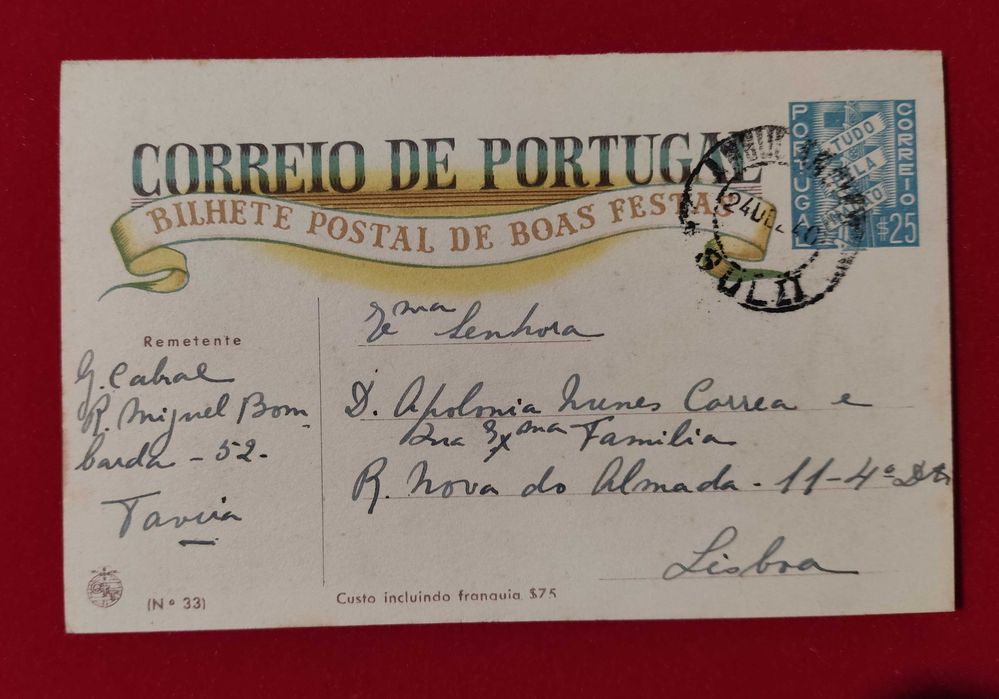 CORREIO DE PORTUGAL
BILHETE POSTAL DE BOAS FESTAS
PORTUGAL
CORREIO
TUDO
PELA
$25
24 DEZ 40
SUL II
Remetente
G. Cabral
R. Miguel Bom
barda - 52 -
Tavira
Exma Senhora
D. Apolonia Nunes Correa e
Sua Exma Familia
R. Nova do Almada - 11 - 4º Dto
Lisboa
(Nº 33)
Custo incluindo franquia $75